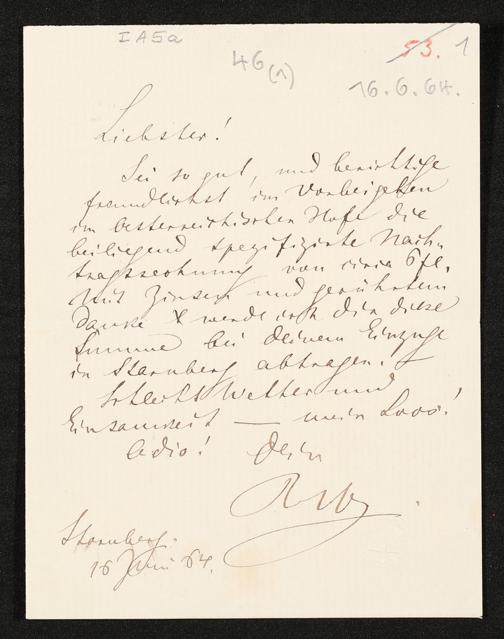 I A 5a
46 (1)
53. 1
16.6.64.
Liebster!
Sei so gut, und berichtige
freundlichst im Vorbeigehen
im Oesterreichischen Hofe die
beiliegend spezifizirte Nach-
tragsrechnung von circa 6 fl.
Mit Zinsen und gerührtem
Danke werde ich Dir diese
Summe bei Deinem Einzuge
in Starnberg abtragen. –
Schlecht Wetter und
Einsamkeit — mein Loos!
Adio! Dein
Starnberg.
16 Juni 64.